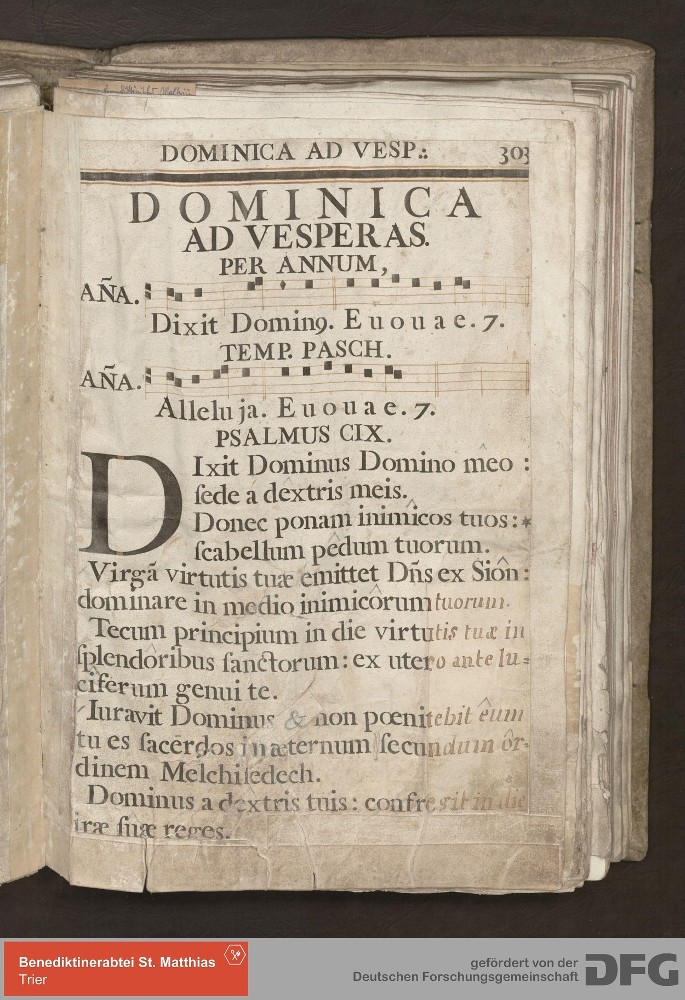 DOMINICA AD VESP.: 303
DOMINICA
AD VESPERAS.
PER ANNUM,
AÑA.
Dixit Doming. Euouae. 7.
TEMP. PASCH.
AÑA.
Alleluja. Euouae. 7.
PSALMUS CIX.
DIxit Dominus Domino mêo :
sede á dêxtris meis.
Donec ponam inimîcos tuos:*
scabellum pêdum tuorum.
Virgã virtutis tuæ emittet Dñs ex Siôn:
domináre in medio inimicôrum tuorum.
Tecum principium in die virtutis tuæ in
splendôribus sanctorum: ex utero ante lu=
ciferum genui te.
Iuravit Dominus & non pœnitebit êum
tu es sacerdos in æternum secundum ôr-
dinem Melchisedech.
Dominus a dextris tuis: confregit in die
iræ suæ reges.
Benediktinerabtei St. Matthias
Trier
gefördert von der
Deutschen Forschungsgemeinschaft
DFG